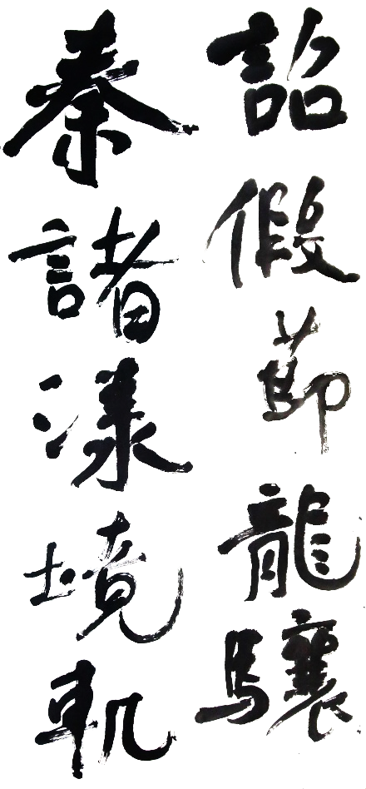 詔假節龍驤
秦諸漾境軌